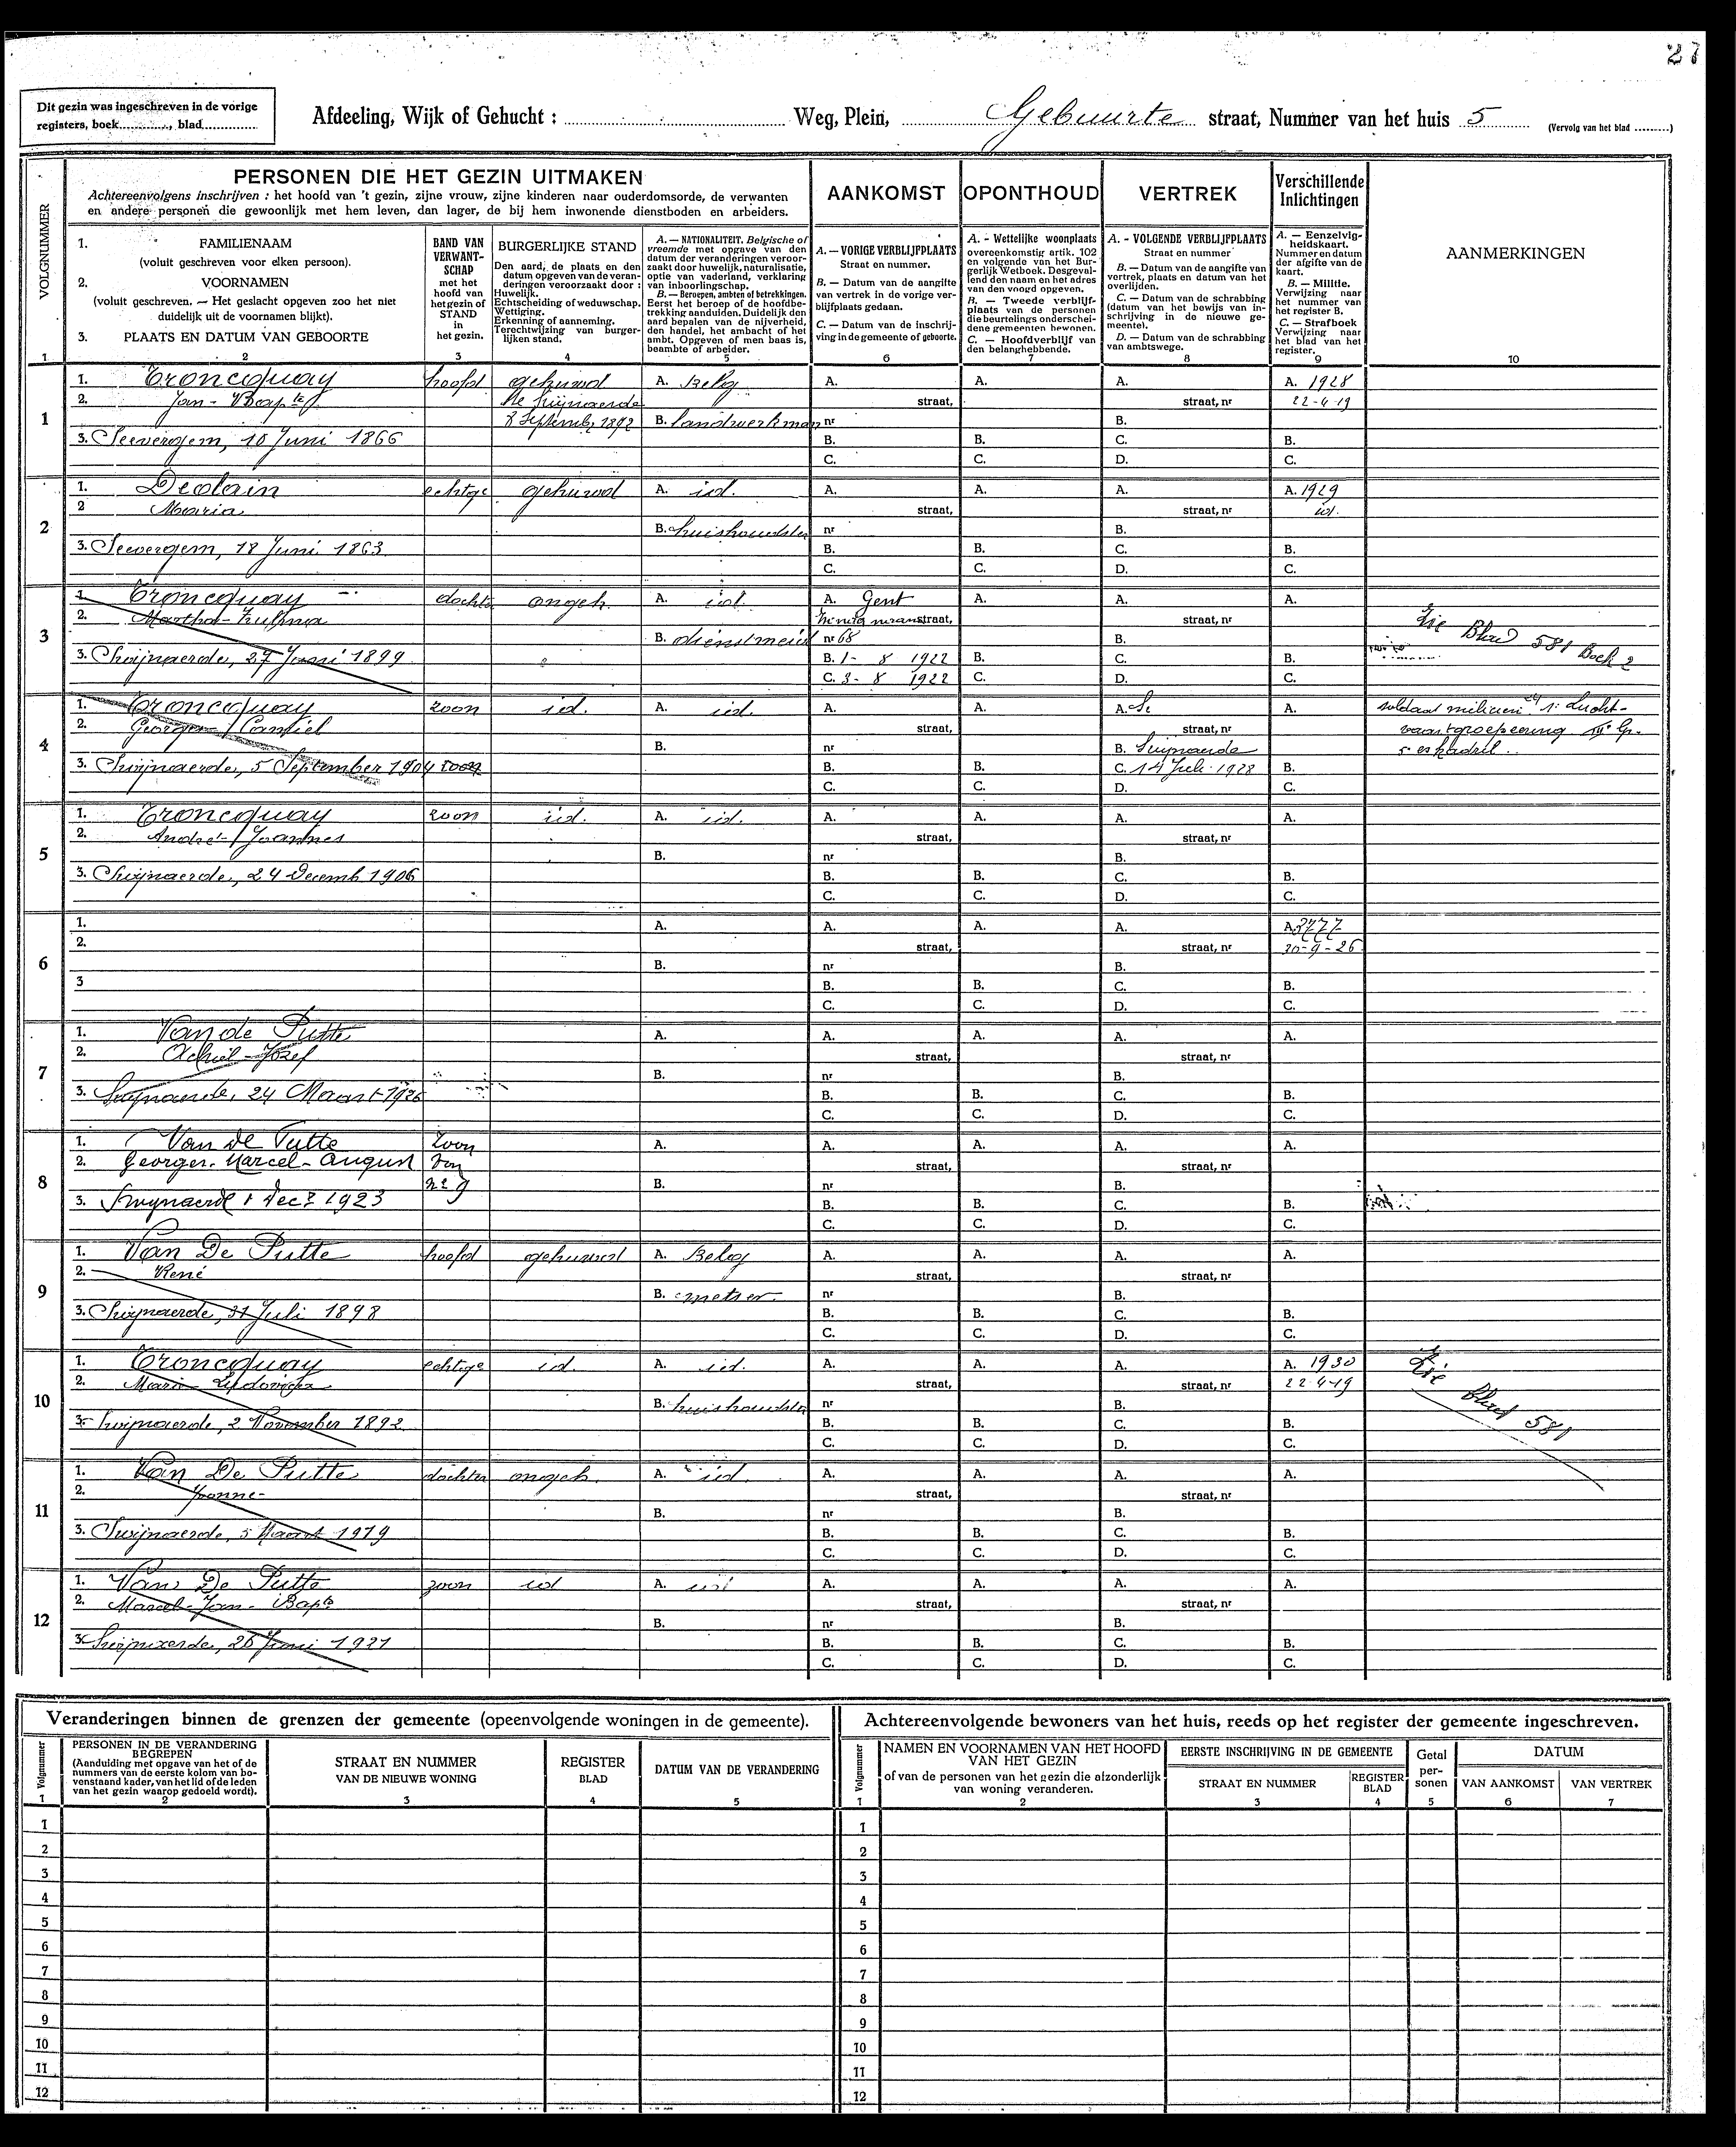 27
Dit gezin was ingeschreven in de vorige
registers, boek............, blad..............
Afdeeling, Wijk of Gehucht : ........ Weg, Plein, Gebuurte straat, Nummer van het huis 5 (Vervolg van het blad ..........)
VOLGNUMMER
PERSONEN DIE HET GEZIN UITMAKEN
Achtereenvolgens inschrijven : het hoofd van 't gezin, zijne vrouw, zijne kinderen naar ouderdomsorde, de verwanten
en andere personen die gewoonlijk met hem leven, dan lager, de bij hem inwonende dienstboden en arbeiders.
AANKOMST
OPONTHOUD
VERTREK
Verschillende
Inlichtingen
AANMERKINGEN
1. FAMILIENAAM
(voluit geschreven voor elken persoon).
2. VOORNAMEN
(voluit geschreven. — Het geslacht opgeven zoo het niet
duidelijk uit de voornamen blijkt).
3. PLAATS EN DATUM VAN GEBOORTE
BAND VAN
VERWANT-
SCHAP
met het
hoofd van
het gezin of
STAND
in
het gezin.
BURGERLIJKE STAND
Den aard, de plaats en den
datum opgeven van de veran-
deringen veroorzaakt door :
Huwelijk.
Echtscheiding of weduwschap.
Wettiging.
Erkenning of aanneming.
Terechtwijzing van burger-
lijken stand.
A. — NATIONALITEIT. Belgische of
vreemde met opgave van den
datum der veranderingen veroor-
zaakt door huwelijk, naturalisatie,
optie van vaderland, verklaring
van inboorlingschap.
B. — Beroepen, ambten of betrekkingen.
Eerst het beroep of de hoofdbe-
trekking aanduiden. Duidelijk den
aard bepalen van de nijverheid,
den handel, het ambacht of het
ambt. Opgeven of men baas is,
beambte of arbeider.
A. — VORIGE VERBLIJFPLAATS
Straat en nummer.
B. — Datum van de aangifte
van vertrek in de vorige ver-
blijfplaats gedaan.
C. — Datum van de inschrij-
ving in de gemeente of geboorte.
A. - Wettelijke woonplaats
overeenkomstig artik. 102
en volgende van het Bur-
gerlijk Wetboek. Desgeval-
lend den naam en het adres
van den voogd opgeven.
B. — Tweede verblijf-
plaats van de personen
die beurtelings onderschei-
dene gemeenten bewonen.
C. — Hoofdverblijf van
den belanghebbende.
A. - VOLGENDE VERBLIJFPLAATS
Straat en nummer
B. — Datum van de aangifte van
vertrek, plaats en datum van het
overlijden.
C. — Datum van de schrabbing
(datum van het bewijs van in-
schrijving in de nieuwe ge-
meente).
D. — Datum van de schrabbing
van ambtswege.
A. — Eenzelvig-
heidskaart.
Nummer en datum
der afgifte van de
kaart.
B. — Militie.
Verwijzing naar
het nummer van
het register B.
C. — Strafboek
Verwijzing naar
het blad van het
register.
1 2 3 4 5 6 7 8 9 10
1
1. Troncquay hoofd gehuwd A. Belg A. A. A. A. 1928
2. Jan-Bapte straat, straat, nr 22-4-19
8 Septemb. 1892 B. landwerkman nr B.
3. Seevergem, 10 Juni 1866 B. B. C. B.
C. C. D. C.
2
1. Declain echtge gehuwd A. id. A. A. A. A. 1929
2 Maria straat, straat, nr id.
B. huishoudster nr B.
3. Seevergem, 18 Juni 1863 B. B. C. B.
C. C. D. C.
3
1. Troncquay dochter ongeh. A. id. A. Gent A. A. A.
2. Martha-Zulma straat, straat, nr
B. dienstmeid nr 68 B.
3. Swijnaerde, 27 Juni 1899 B. 1- 8 1922 B. C. B.
C. 3- 8 1922 C. D. C.
Zie Blad 581 Boek 2
4
1. Troncquay zoon id. A. id. A. A. A. St A.
2. Georges-Camiel straat, straat, nr
B. nr B. Swijnaerde
3. Swijnaerde, 5 September 1904 zoon B. B. C. 14 Juli 1928 B.
C. C. D. C.
soldaat milicien 24 1e Lucht-
vaartgroepeering III Gr.
5 eskadril.
5
1. Troncquay zoon id. A. id. A. A. A. A.
2. André-Joannes straat, straat, nr
B. nr B.
3. Swijnaerde, 24 Decemb 1906 B. B. C. B.
C. C. D. C.
6
1. A. A. A. A. A. 3777
2. straat, straat, nr 20-9-26
B. nr B.
3 B. B. C. B.
C. C. D. C.
7
1. Van de Putte A. A. A. A. A.
2. Achiel-Jozef straat, straat, nr
B. nr B.
3. Swijnaerde, 24 Maart 1926 B. B. C. B.
C. C. D. C.
8
1. Van de Putte Zoon A. A. A. A. A.
2. Georges-Marcel-August van straat, straat, nr
nr 9 B. nr B.
3. Swijnaerde 1 Dec. 1923 B. B. C. B.
C. C. D. C.
9
1. Van De Putte hoofd gehuwd A. Belg A. A. A. A.
2. René straat, straat, nr
B. metser nr B.
3. Swijnaerde, 31 Juli 1898 B. B. C. B.
C. C. D. C.
10
1. Troncquay echtge id. A. id. A. A. A. A. 1930
2. Maria Ludovica straat, straat, nr 22-4-19
B. huishoudster nr B.
3. Swijnaerde, 2 November 1892 B. B. C. B.
C. C. D. C.
Zie Blad 581
11
1. Van De Putte dochter ongeh. A. id. A. A. A. A.
2. Yvonne- straat, straat, nr
B. nr B.
3. Swijnaerde, 5 Maart 1919 B. B. C. B.
C. C. D. C.
12
1. Van De Putte zoon id A. id A. A. A. A.
2. Marcel-Jan-Bapte straat, straat, nr
B. nr B.
3. Swijnaerde, 26 Juni 1921 B. B. C. B.
C. C. D. C.
Veranderingen binnen de grenzen der gemeente (opeenvolgende woningen in de gemeente).
Volgnummer
PERSONEN IN DE VERANDERING
BEGREPEN
(Aanduiding met opgave van het of de
nummers van de eerste kolom van bo-
venstaand kader, van het lid of de leden
van het gezin waarop gedoeld wordt).
STRAAT EN NUMMER
VAN DE NIEUWE WONING
REGISTER
BLAD
DATUM VAN DE VERANDERING
1 2 3 4 5
1
2
3
4
5
6
7
8
9
10
11
12
Achtereenvolgende bewoners van het huis, reeds op het register der gemeente ingeschreven.
Volgnummer
NAMEN EN VOORNAMEN VAN HET HOOFD
VAN HET GEZIN
of van de personen van het gezin die afzonderlijk
van woning veranderen.
EERSTE INSCHRIJVING IN DE GEMEENTE
STRAAT EN NUMMER
REGISTER
BLAD
Getal
per-
sonen
DATUM
VAN AANKOMST
VAN VERTREK
1 2 3 4 5 6 7
1
2
3
4
5
6
7
8
9
10
11
12